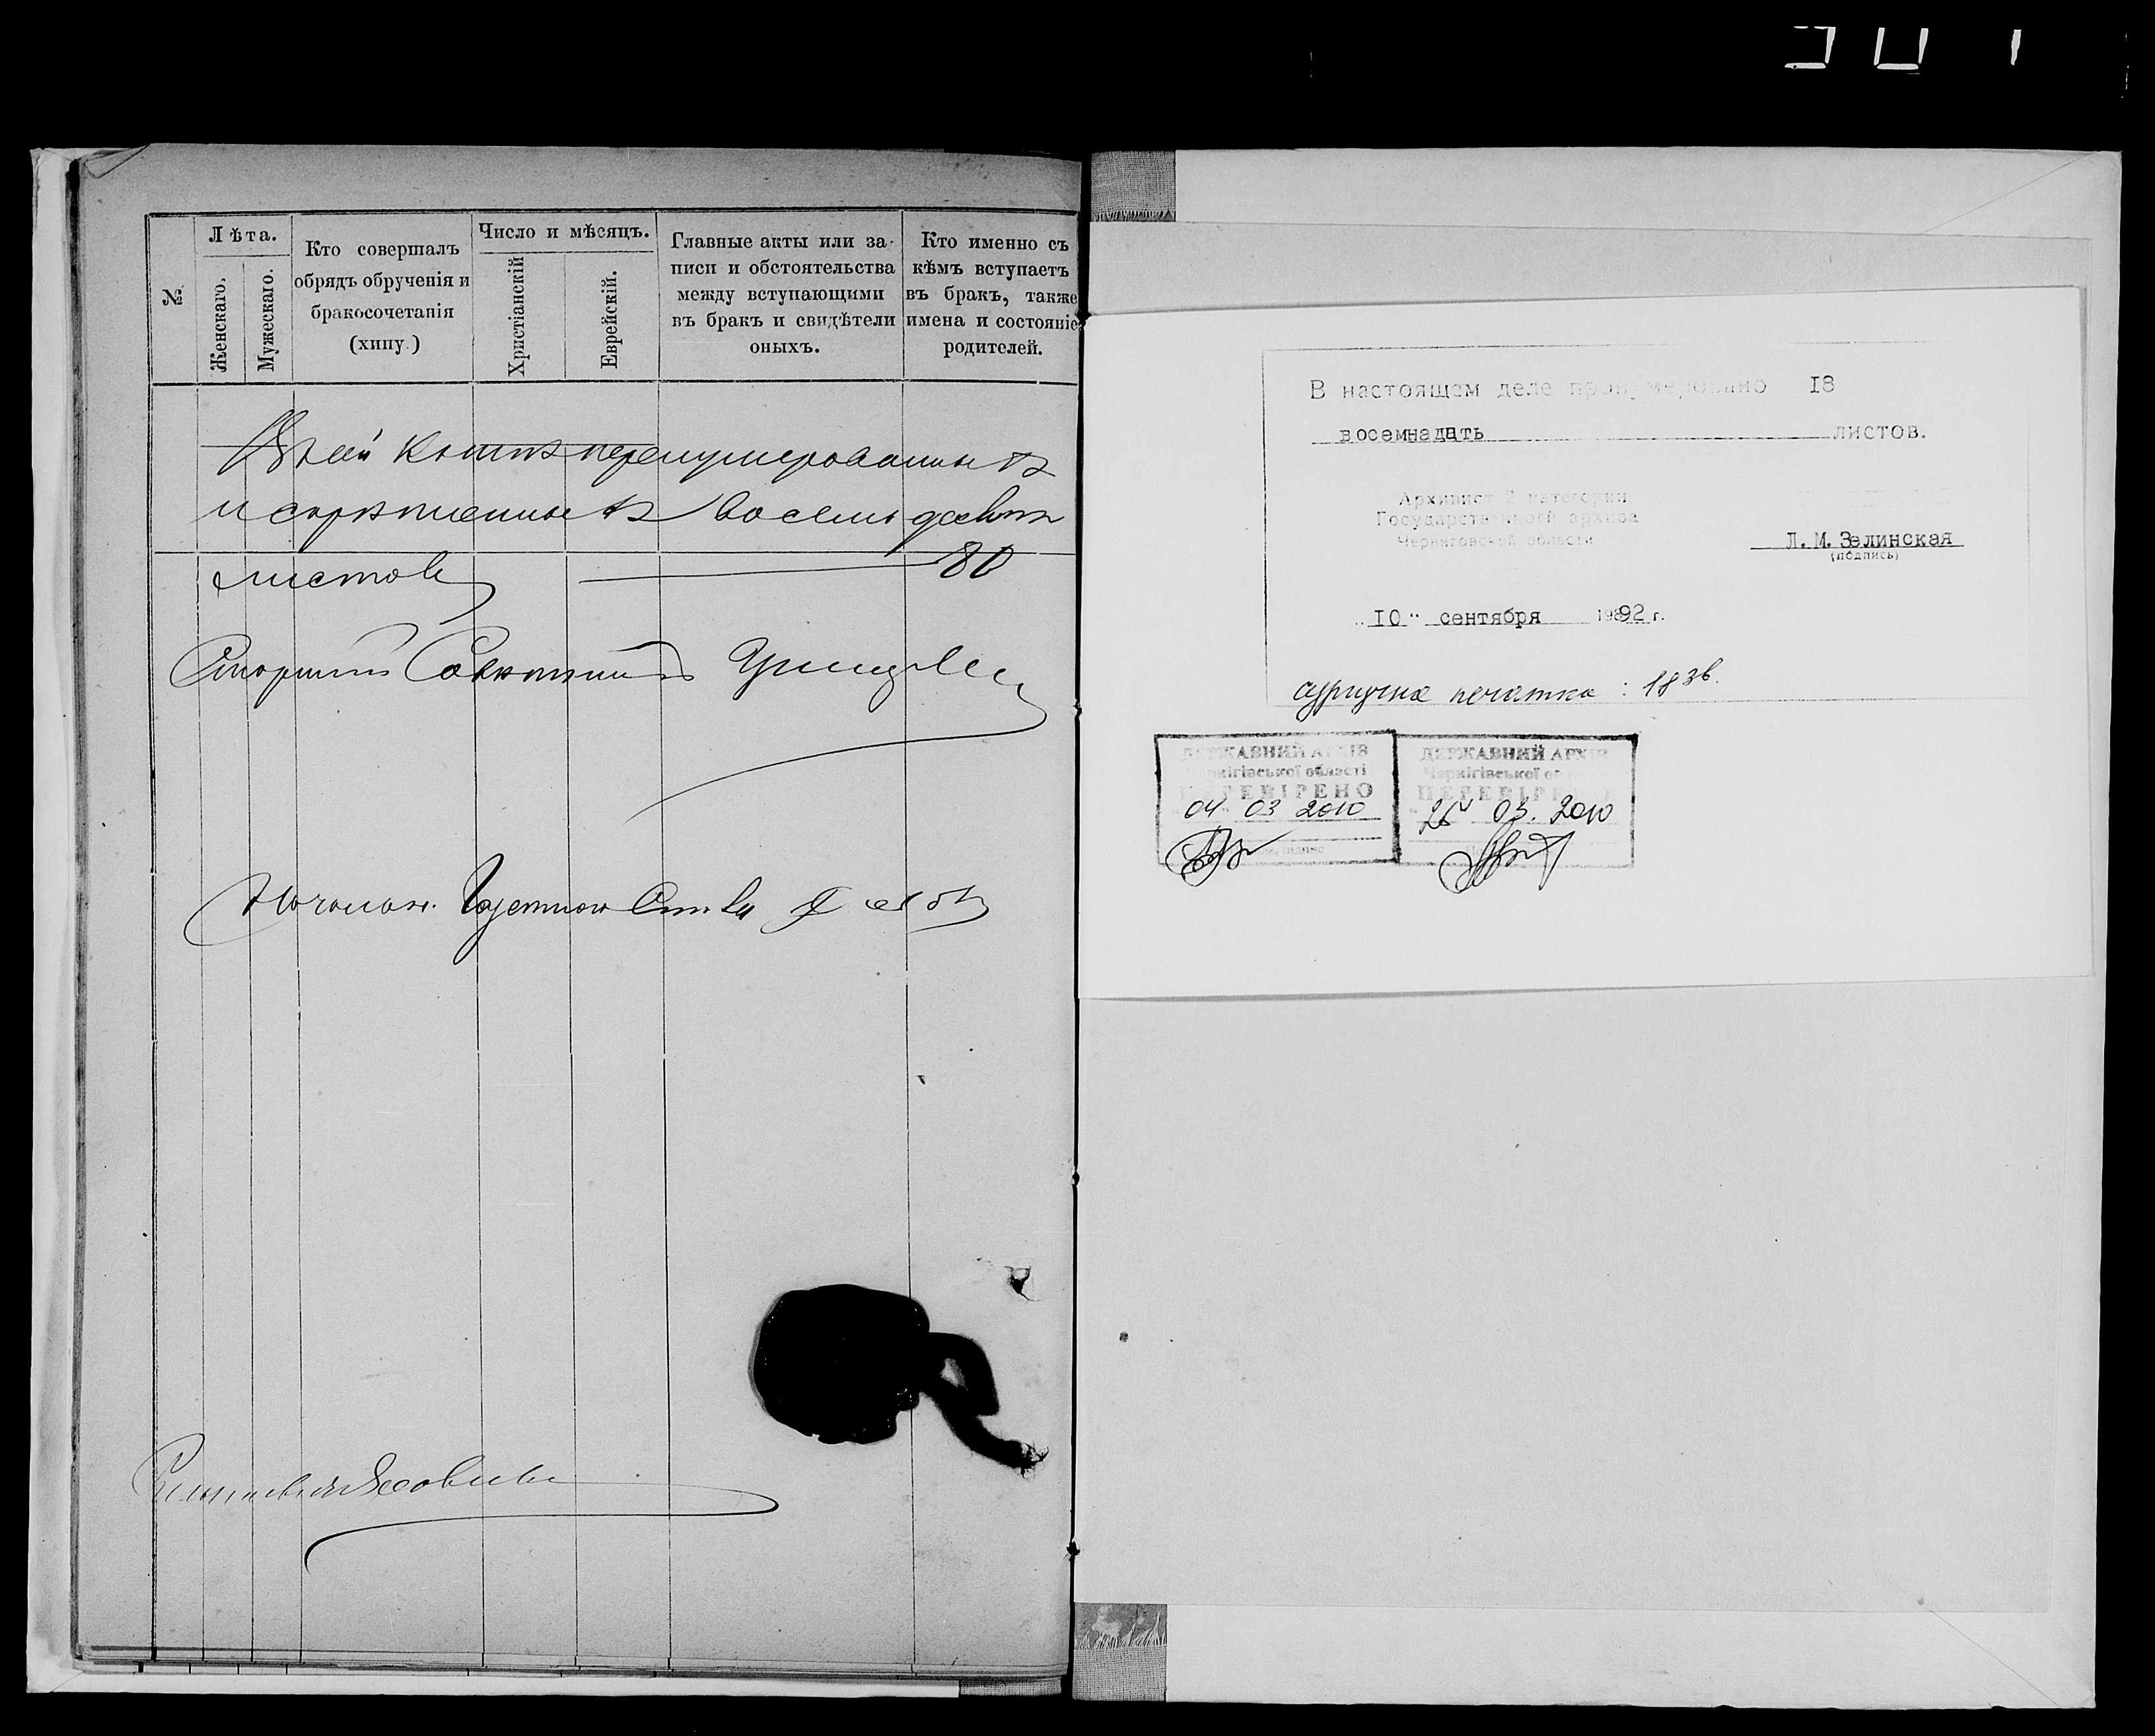 №
Лѣта.
Женскаго.
Мужескаго.
Кто совершалъ
обрядъ обрученія и
бракосочетанія
(хипу.)
Число и мѣсяцъ.
Христіанскій
Еврейскій.
Главные акты или за-
писи и обстоятельства
между вступающими
въ бракъ и свидѣтели
оныхъ.
Кто именно съ
кѣмъ вступаетъ
въ бракъ, также
имена и состояніе
родителей.
книгѣ перенумерованныхъ
и скрѣпленныхъ восемьдесятъ
листовъ 80
Старшій Совѣтникъ
В настоящем деле пронумеровано 18
восемнадцать листов.
Архивист 2 категории
Государственного архива
Черниговской области
Л.М.Зелинская
(подпись)
„10" сентября 1992 г.
сургучна печатка : 18 зв.
ДЕРЖАВНИЙ АРХІВ
Чернігівської області
ПЕРЕВІРЕНО
04 03 2010
підпис
ДЕРЖАВНИЙ АРХІВ
Чернігівської області
ПЕРЕВІРЕНО
03. 2010